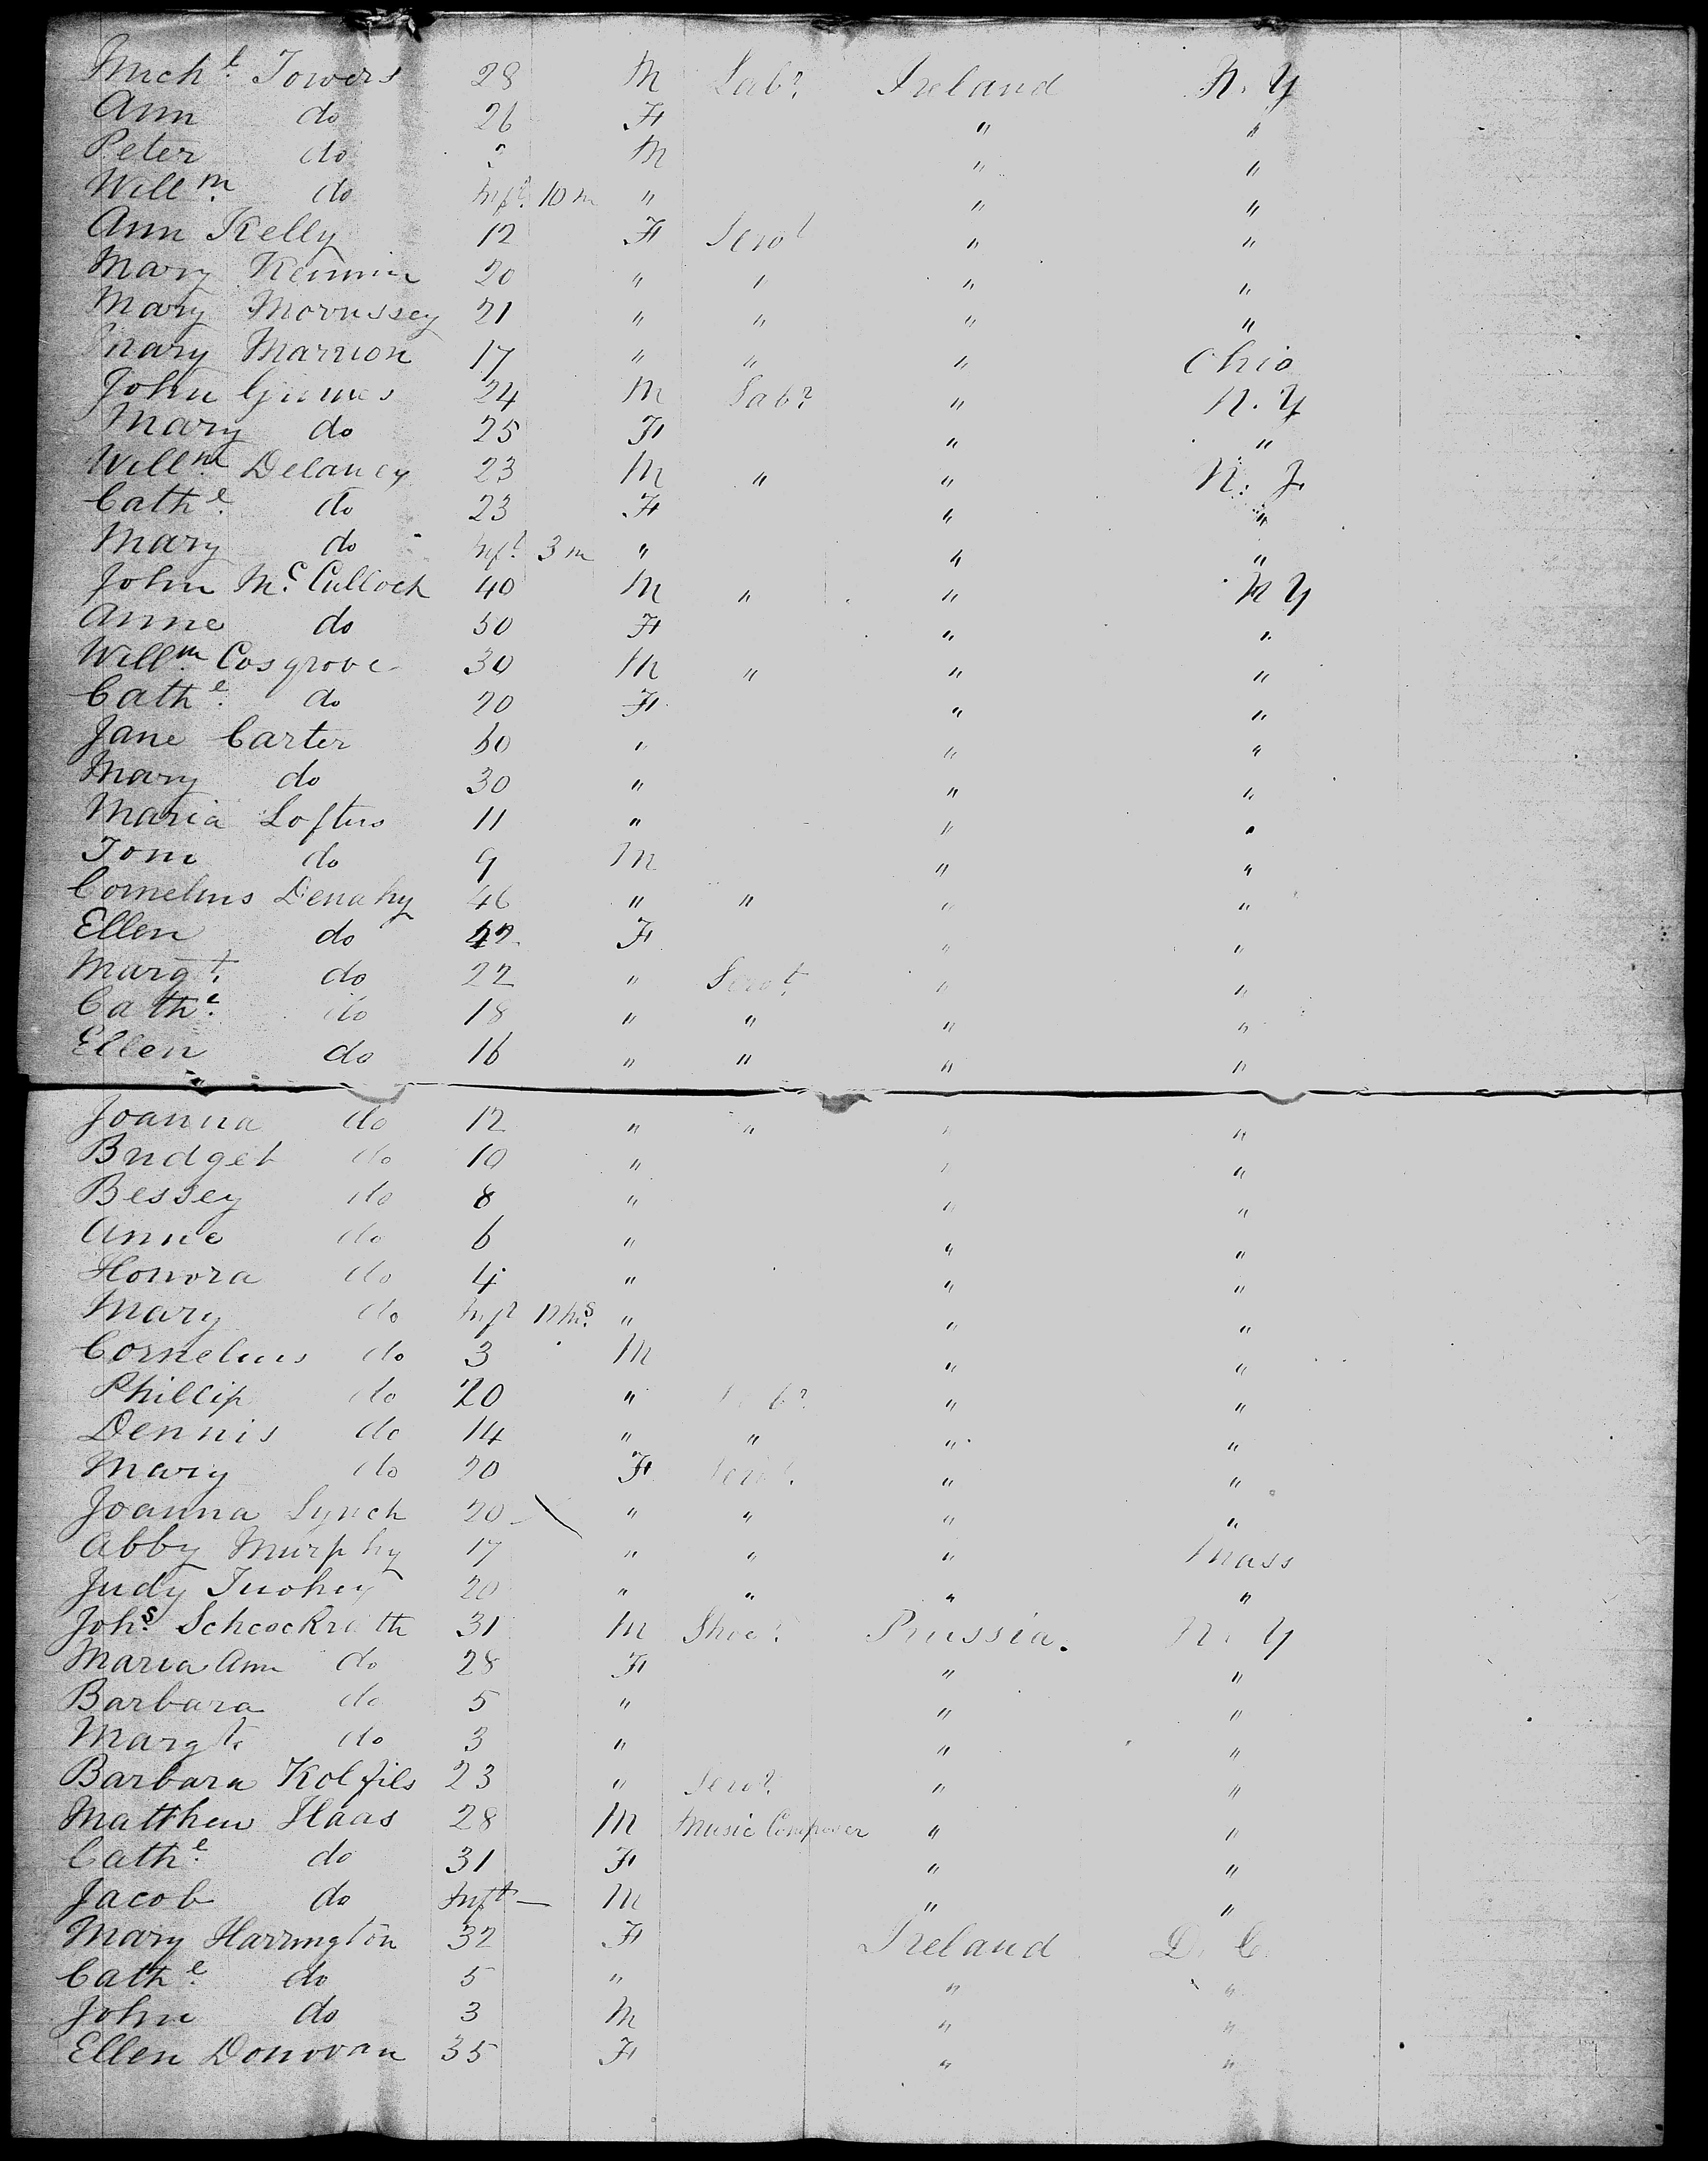 Mich.l Towers 28 M Lab.r Ireland N.Y
Ann do 26 F " "
Peter do M " "
Will.m do Inf.t 10 m " " "
Ann Kelly 12 F Serv.t " "
Mary 20 " " " "
Mary Morrissey 21 " " " "
Mary Marrion 17 " " " Ohio
John Grimes 24 M Lab.r " N.Y
Mary do 25 F " "
Will.m Delaney 23 M " " N.J.
Cath.e do 23 F " "
Mary do Inf.t 3 m " " "
John Mc.Culloch 40 M " " N Y
Anne do 50 F " "
Will.m Cosgrove 30 M " " "
Cath.e do 20 F " "
Jane Carter 60 " " "
Mary do 30 " " "
Maria Loftus 11 " " "
Tom do 9 M " "
Cornelius Denahy 46 " " " "
Ellen do 42 F " "
Marg.t do 22 " Serv.t " "
Cath.e do 18 " " " "
Ellen do 16 " " " "
Joanna do 12 " " " "
Bridget do 10 " " "
Bessey do 8 " " "
Anne do 6 " " "
Honora do 4 " " "
Mary do Inf.t " " "
Cornelius do 3 M " "
Phillip do 20 " Lab.r " "
Dennis do 14 " " " "
Mary do 20 F Serv.t " "
Joanna Lynch 20 " " " "
Abby Murphy 17 " " " Mass
Judy Tuohey 20 " " " "
Joh.s 31 M Shoe.r Prussia. N.Y
Maria Ann do 28 F " "
Barbara do 5 " " "
Margt. do 3 " " "
Barbara Kolfils 23 " Serv.t " "
Matthew Haas 28 M Music Composer " "
Cath.e do 31 F " "
Jacob do Inf.t — M " "
Mary Harrington 32 F Ireland D.C.
Cath.e do 5 " " "
John do 3 M " "
Ellen Donovan 35 F " "